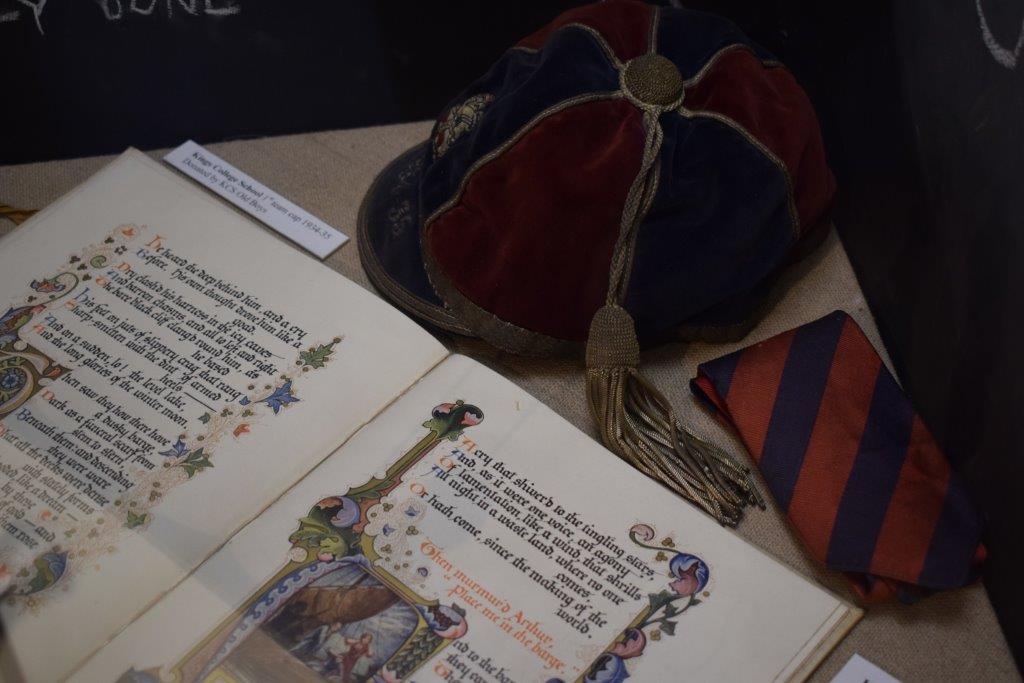 JUNE
Kings College School 1st team cap 1934-35
Donated by K.C.S Old Boys
He heard the deep behind him, and a cry
Before. His own thought drove him like a
goad.
Dry clash'd his harness in the icy caves
And barren chasms, and all to left and right
The bare black cliff clang'd round him, as
he based
His feet on juts of slippery crag that rang
Sharp-smitten with the dint of armed
heels —
And on a sudden, lo! the level lake,
And the long glories of the winter moon.
Then saw they how there hove
a dusky barge,
Dark as a funeral scarf from
stem to stern,
Beneath them; and descending
they were ware
That all the decks were dense
with stately forms
like a dream — by
them rose
A cry that shiver'd to the tingling stars,
And, as it were one voice, an agony
Of lamentation, like a wind, that shrills
All night in a waste land, where no one
comes,
Or hath come, since the making of the
world.
Then murmur'd Arthur,
"Place me in the barge"
And to the
they